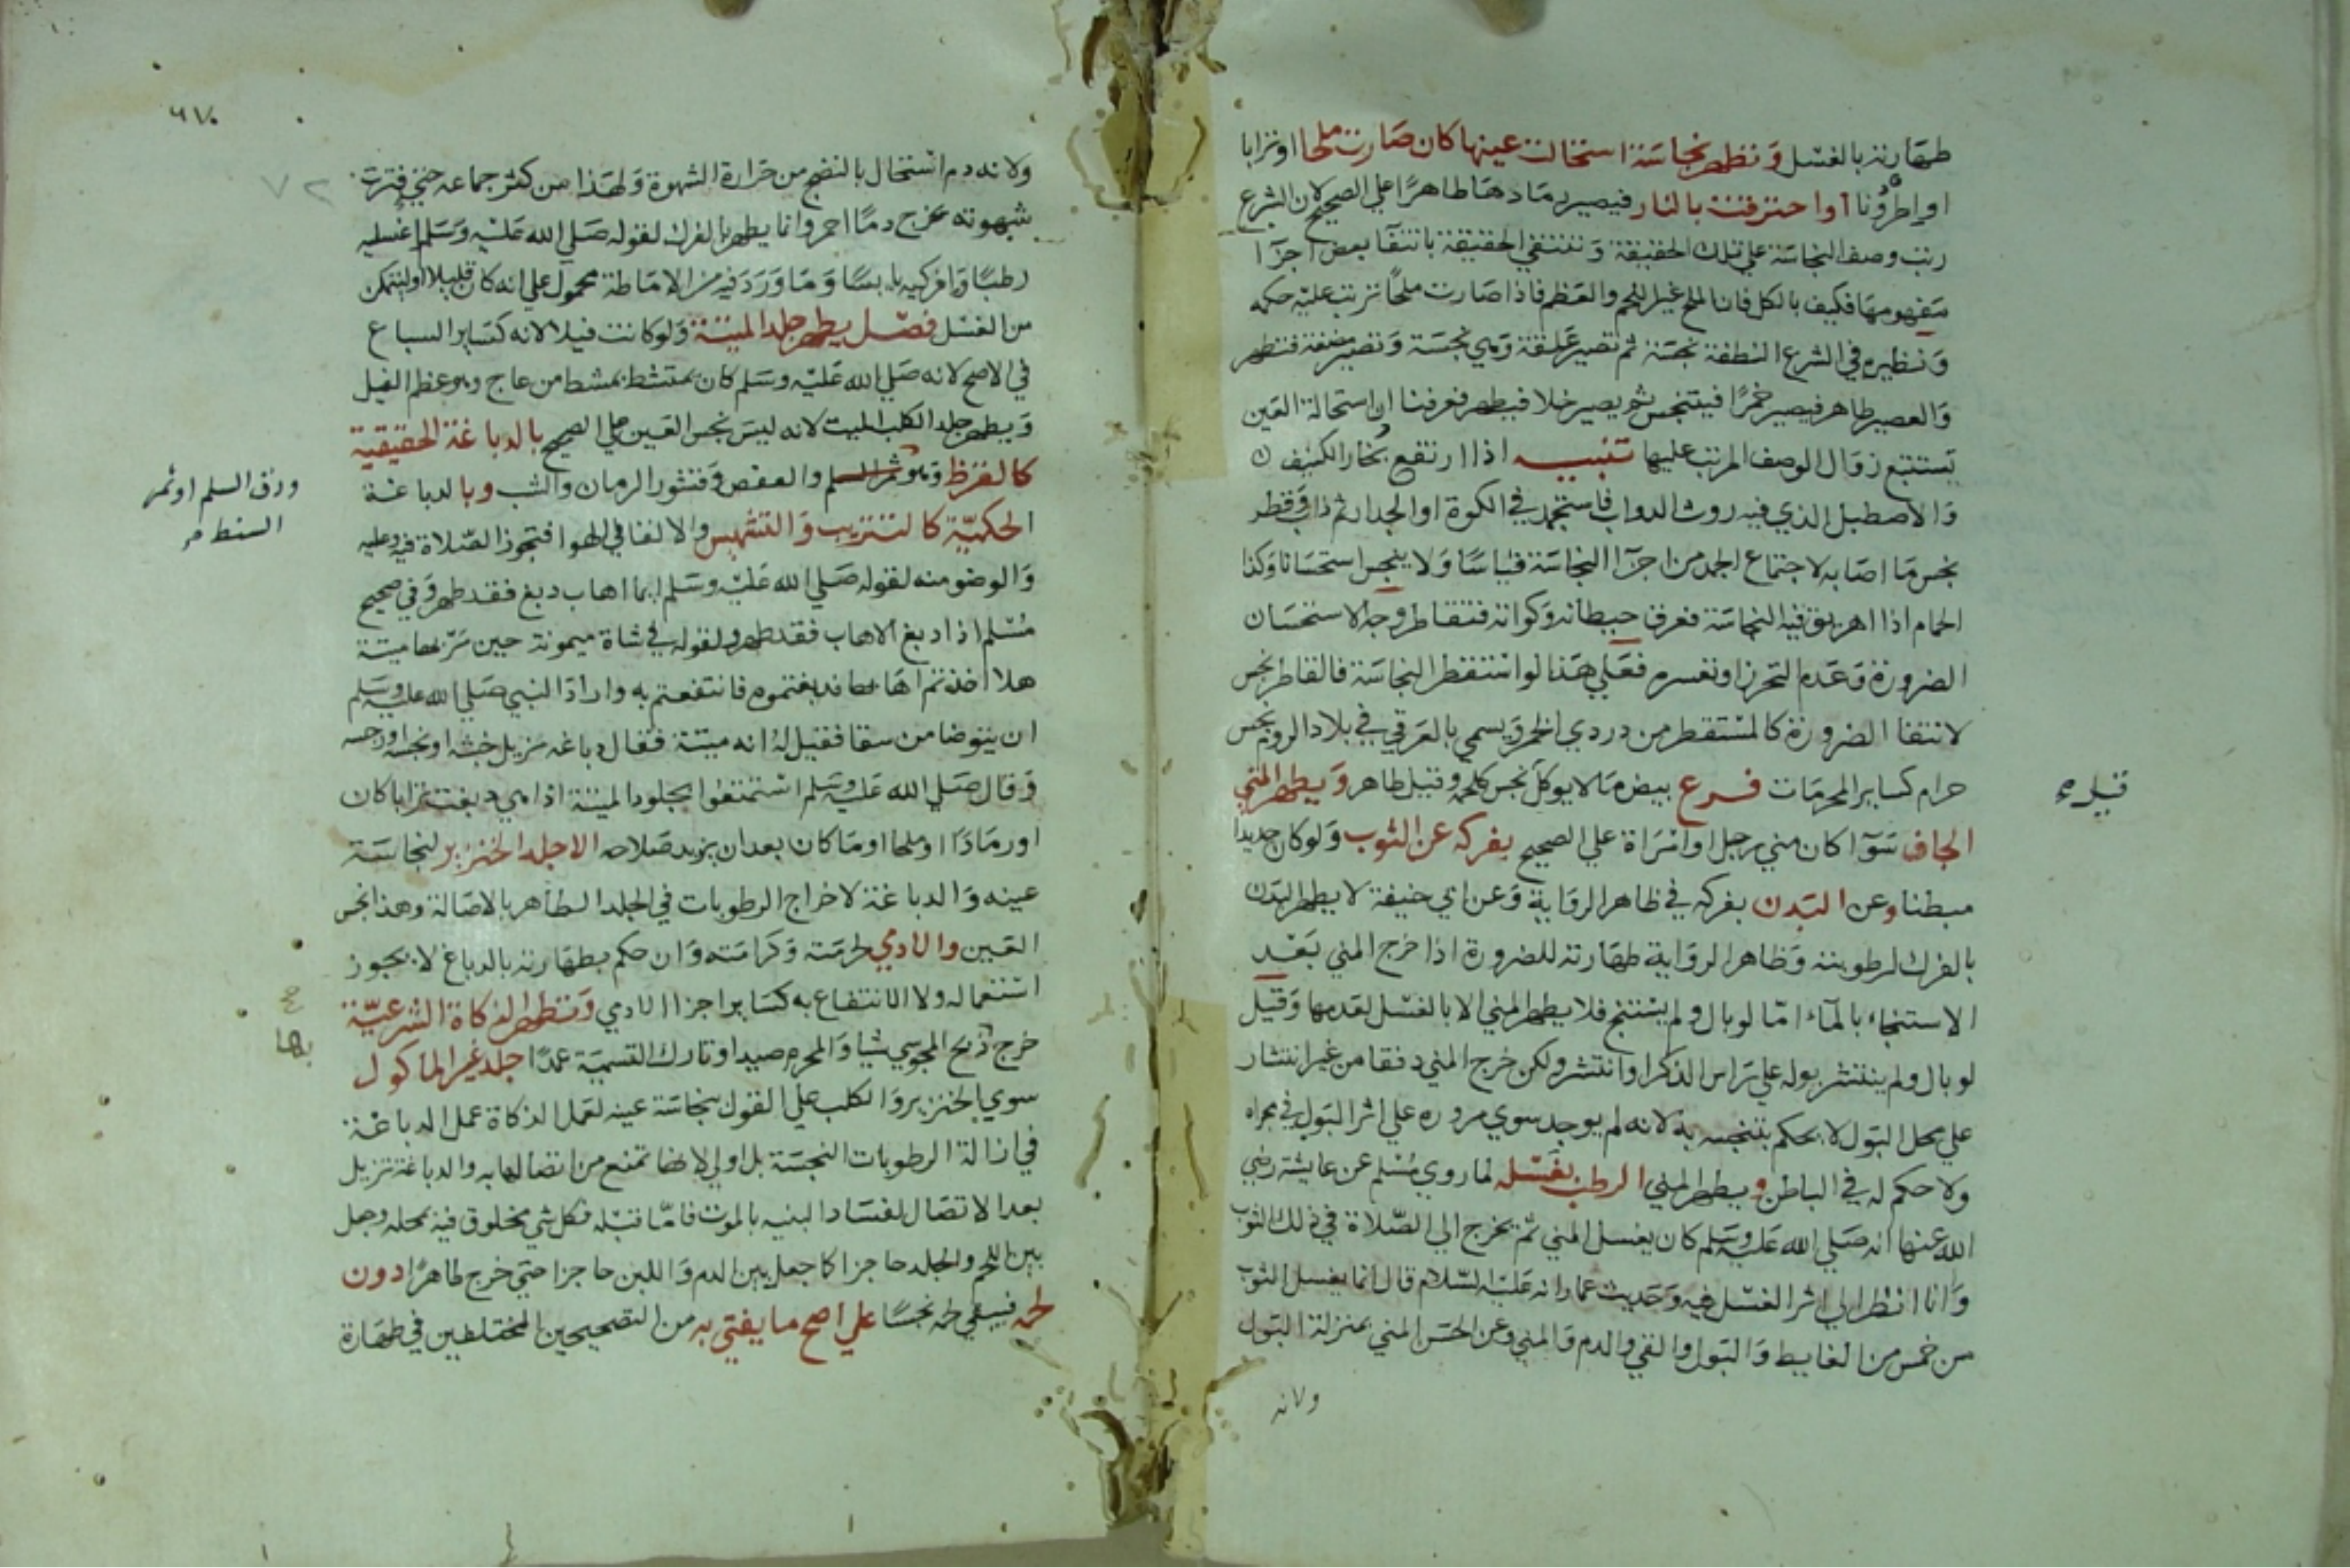 طهارته بالغسل وتطهر نجاسة استحالت عينها كان صارت ملحا او ترابا
او اطرونا او احترقت بالنار فيصير رمادها طاهرا علي الصحيح لان الشرع
رتب وصف النجاسة علي تلك الحقيقة وتنتفي الحقيقة بانتفا بعض اجزآ
مفهومها فكيف بالكل فان الملح غير اللحم والعظم فاذا صارت ملحا ترتب عليه حكمه
ونظيره في الشرع النطفة نجسة ثم تصير علقة وهي نجسة وتصير مضغة فتطهر
والعصير طاهر فيصير خمرا فيتنجس ثم يصير خلا فيطهر فعرفنا ان استحالة العين
تستتبع زوال الوصف المرتب عليها تنبيه اذا ارتفع بخار الكنيف
والاصطبل الذي فيه روث الدواب فاستجمد في الكوة او الجدار ثم ذاب وقطر
نجس ما اصابه لاجتماع الجمد من اجزآ النجاسة قياسا ولا ينجس استحسانا وكذا
الحمام اذا اهريق فيه النجاسة فعرق حيطانه وكواته فتقاطر وجه الاستحسان
الضرورة وعدم التحرز او تعسره فعلي هذا لو استقطر النجاسة فالقاطر نجس
لانتفا الضرورة كالمستقطر من دردي الخمر ويسمي بالعرقي في بلاد الروم نجس
حرام كساير المحرمات فرع بيض ما لا يوكل نجس كلحمه وقيل طاهر ويطهر المني
قيل
الجاف سوآ كان مني رجل او امراة علي الصحيح بفركه عن الثوب ولو كان جديدا
مبطنا وعن البدن بفركه في ظاهر الرواية وعن ابي حنيفة لا يطهر البدن
بالفرك لرطوبته وظاهر الرواية طهارته للضرورة اذا خرج المني بعد
الاستنجاء بالمآء اما لو بال ولم يستنج فلا يطهر المني الا بالغسل لعدمها وقيل
لو بال ولم ينتشر بوله علي راس الذكر او انتشر ولكن خرج المني دفقا من غير انتشار
علي محل البول لا يحكم بتنجسه به لانه لم يوجد سوي مروره علي اثر البول في مجراه
ولا حكم له في الباطن ويطهر المني الرطب بغسله لما روي مسلم عن عايشة رضي
الله عنها انه صلي الله عليه وسلم كان يغسل المني ثم يخرج الي الصلاة في ذلك الثوب
وانا انظر الي اثر الغسل فيه وحديث عمار انه عليه السلام قال انما يغسل الثوب
من خمس من الغايط والبول والقي والدم والمني وعن الحسن المني بمنزلة البول
ولانه
٧٢
ولانه دم استحال بالنضج من حرارة الشهوة ولهذا من كثر جماعه حتي فترت
شهوته يخرج دما احمر وانما يطهر بالفرك لقوله صلي الله عليه وسلم اغسليه
رطبا وافركيه يابسا وما ورد فيه من الاماطة محمول علي انه كان قليلا او ليتمكن
من الغسل فصل يطهر جلد الميتة ولو كانت فيلا لانه كساير السباع
في الاصح لانه صلي الله عليه وسلم كان يمتشط بمشط من عاج وهو عظم الفيل
ويطهر جلد الكلب الميت لانه ليس نجس العين علي الصحيح بالدباغة الحقيقية
كالقرظ وهو ثمر السلم والعفص وقشور الرمان والشب وبالدباغة
ورق السلم او ثمر
السنط
الحكمية كالتتريب والتشميس والالقا في الهوا فتجوز الصلاة فيه وعليه
والوضو منه لقوله صلي الله عليه وسلم ايما اهاب دبغ فقد طهر وفي صحيح
مسلم اذا دبغ الاهاب فقد طهر ولقوله في شاة ميمونة حين مر بها ميتة
هلا اخذتم اهابها فدبغتموه فانتفعتم به واراد النبي صلي الله عليه وسلم
ان يتوضا من سقا فقيل له انه ميتة فقال دباغه مزيل خبثه او نجسه او رجسه
وقال صلي الله عليه وسلم استمتعوا بجلود الميتة اذا هي دبغت ترابا كان
او رمادا او ملحا او ما كان بعد ان يزيد صلاحه الا جلد الخنزير لنجاسة
عينه والدباغة لاخراج الرطوبات في الجلد الطاهر بالاصالة وهذا نجس
العين والادمي لحرمته وكرامته وان حكم بطهارته بالدباغ لا يجوز
استعماله ولا الانتفاع به كساير اجزا الادمي وتطهر الذكاة الشرعية
خرج ذبح المجوسي شيا والمحرم صيدا وتارك التسمية عمدا جلد غير الماكول
بها
سوي الخنزير والكلب علي القول بنجاسة عينه لعمل الذكاة عمل الدباغة
في ازالة الرطوبات النجسة بل اولي لانها تمنع من اتصالها به والدباغة تزيل
بعد الاتصال لفساد البنيه بالموت فاما قبله فكل شي مخلوق فيه بمحله وجعل
بين اللحم والجلد حاجزا كما جعل بين الدم واللبن حاجزا حتي خرج طاهرا دون
لحمه فيبقي لحمه نجسا علي اصح ما يفتي به من التصحيحين المختلفين في طهارة